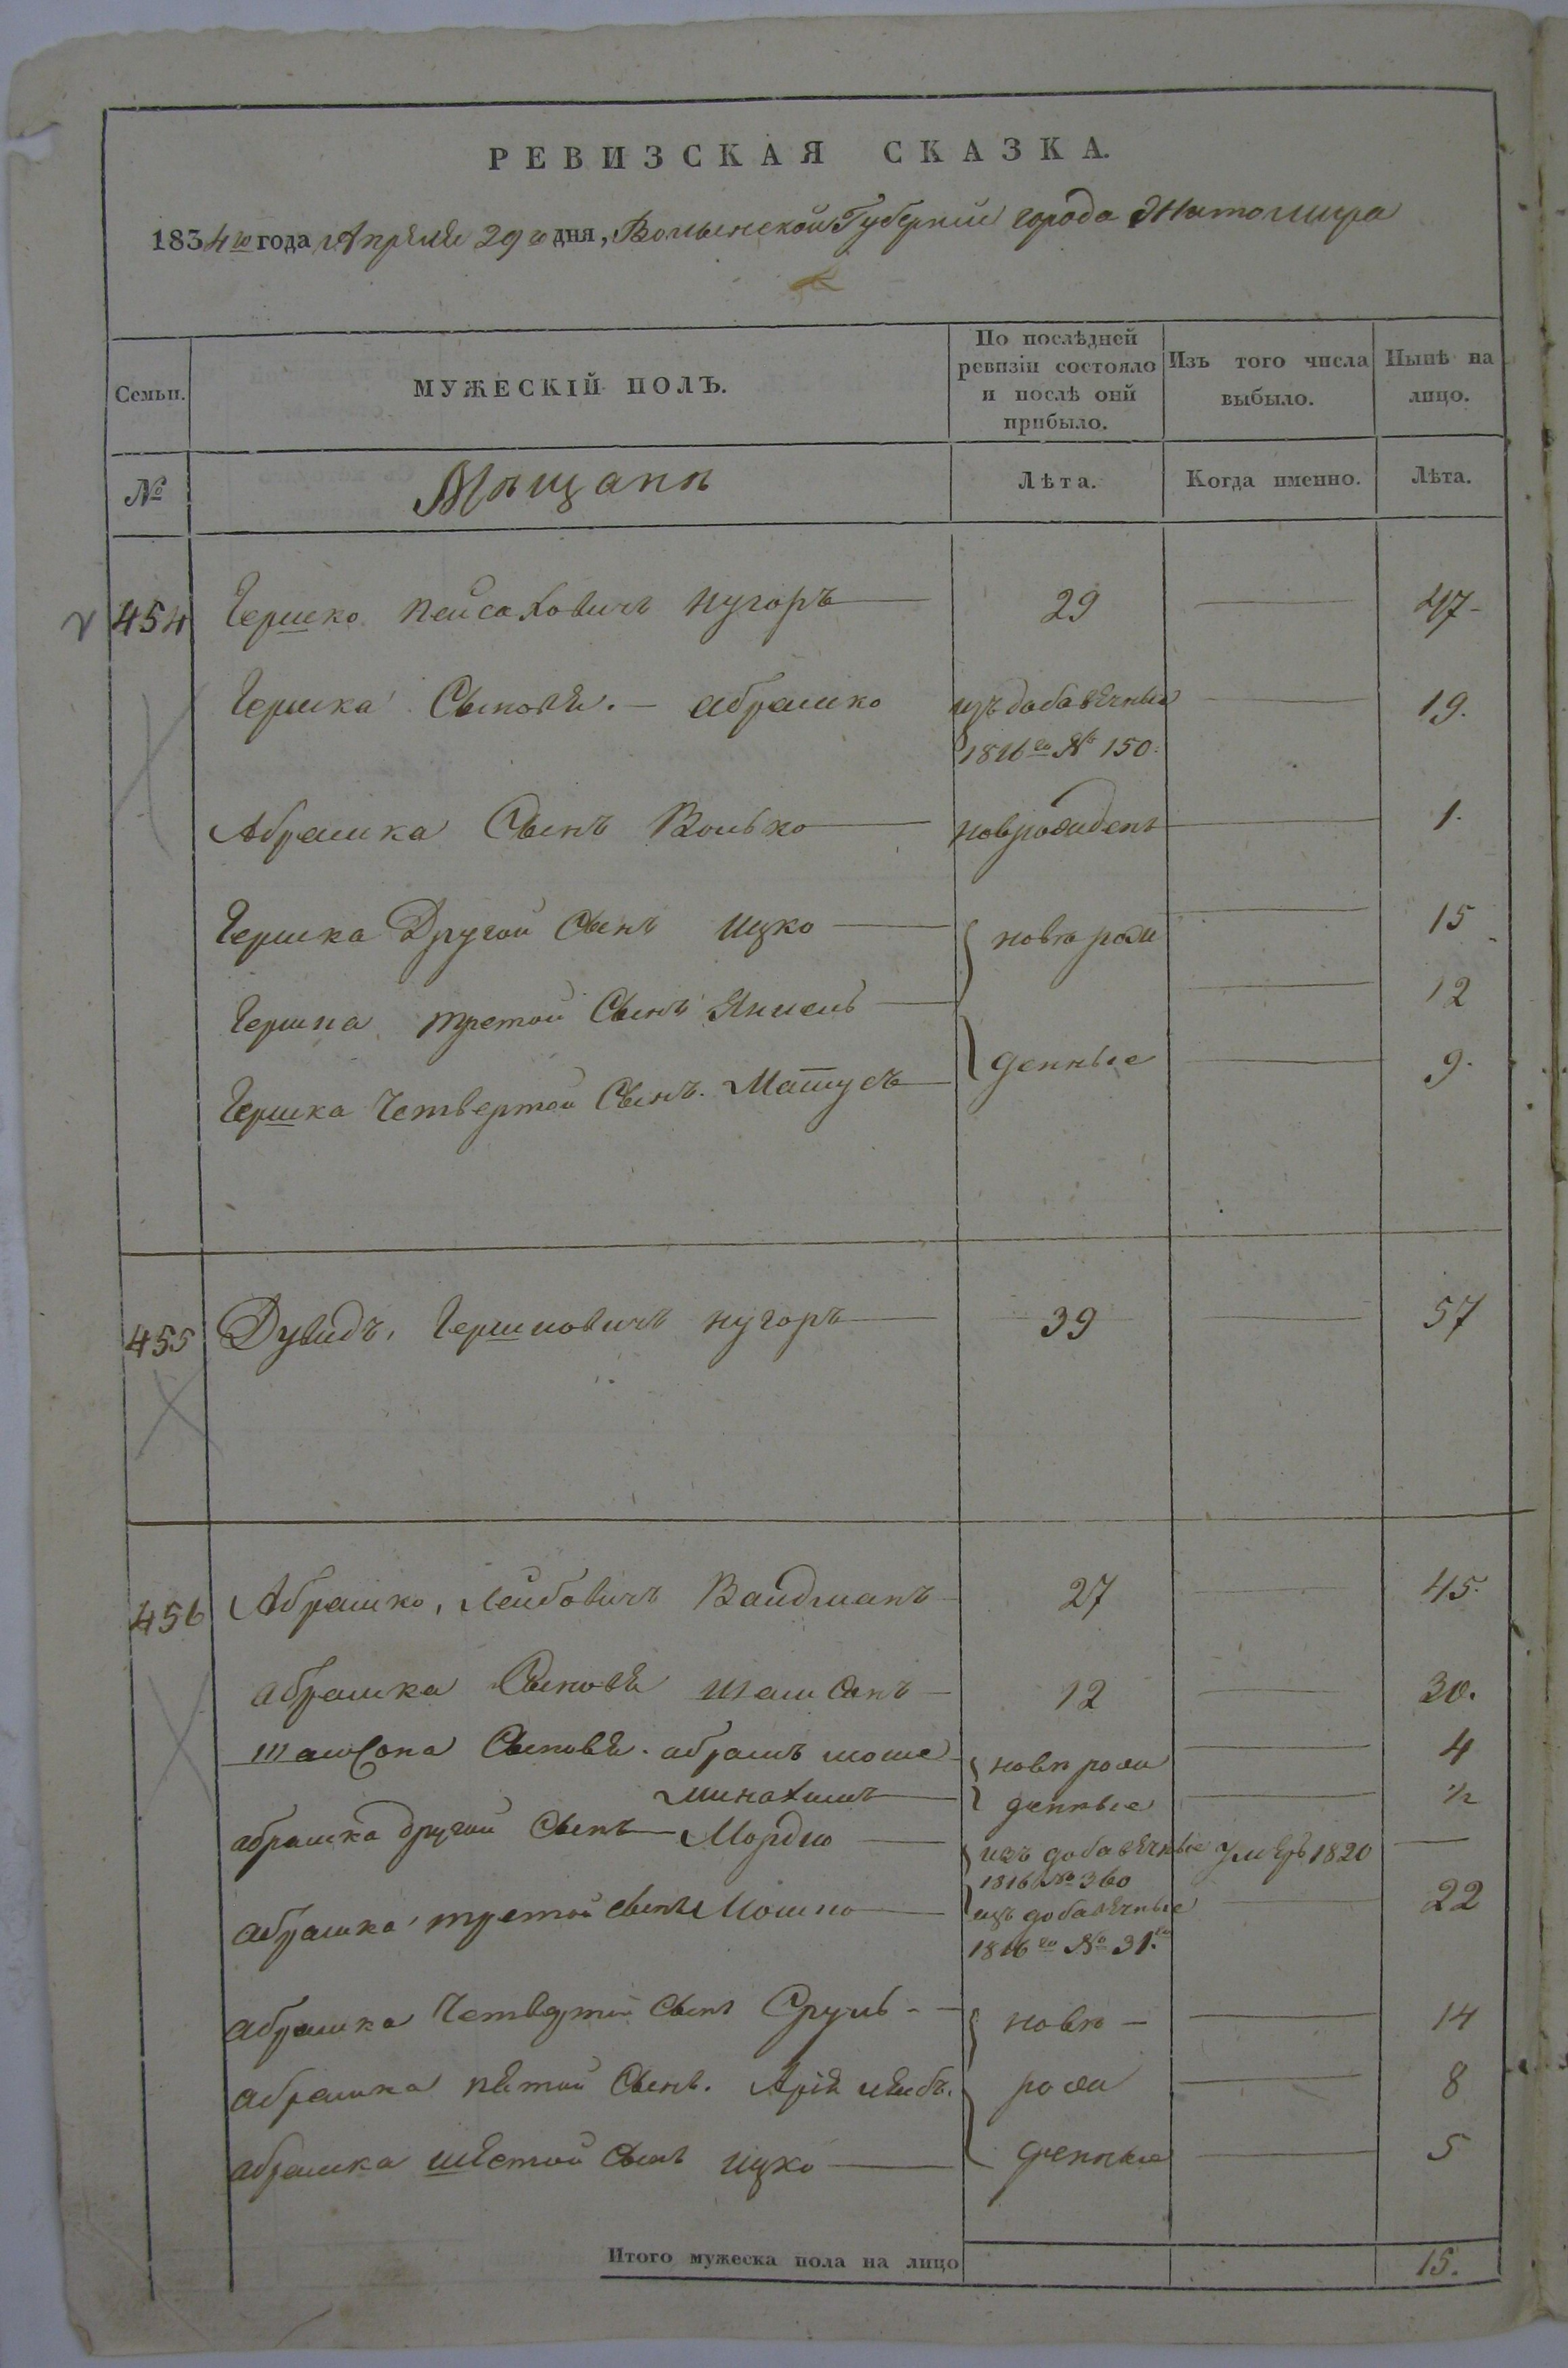 РЕВИЗСКАЯ СКАЗКА.
1834го года Апреля 29го дня, Волынской Губернии города Житомира
Семьи.
МУЖЕСКІЙ ПОЛЪ.
По послѣдней
ревизіи состояло
и послѣ оній
прибыло.
Изъ того числа
выбыло.
Нынѣ на
лицо.
№
Мѣщане
Лѣта.
Когда именно.
Лѣта.
454 Гершко Пейсаховичъ нугоръ 29 47
Гершка Сыновя. абрашко изъ добавечные 19.
1816го № 150.
Абрашка Сынъ Волько новорожиденъ 1.
Гершка Другой Сынъ ицко новорожи 15
Гершка третой Сынъ Янкель 12
Гершка Четвертой Сынъ. Матусъ денные 9.
455 Дувидъ, Гершковичъ нугоръ 39 57
456 Абрашко, Лейбовичъ Вайдманъ 27 45.
абрашка Сыновя шамсонъ 12 30.
шамсона Сыновя. абрамъ моше новорожи 4
минахимъ денные 1/2
абрашка другой Сынъ Мордко изъ добавечные умеръ 1820
1816 № 360
абрашка третой сынъ Мошко изъ добавечные 22
1816го № 31.
абрашка Четвертой сынъ Сруль новo 14
абрашка пятой Сынъ. Арія леибъ. рожи 8
абрашка шестой сынъ ицко денные 5
Итого мужеска пола на лицо 15.